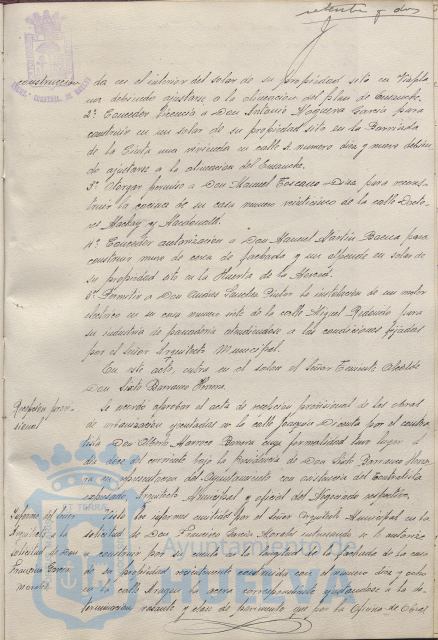 setenta y dos
construcción
da en el interior del solar de su propiedad sito en Viapla
na debiendo ajustarse a la alineación del plan de Ensanche.
2º Conceder licencia a Don Antonio Noguera García para
construir en un solar de su propiedad sito en la Barriada
de la Cinta una vivienda en calle A. número diez y nueve debien
do ajustarse a la alineación del Ensanche.
3º Otorgar permiso a Don Manuel Toscano Diaz para recons
truir la cocina de su casa número veinticinco de la calle Docto
res Mackay y Macdonald.
4º Conceder autorización a Don Manuel Martín Baeza para
construir muro de cerca de fachada y un alpende en solar de
su propiedad sito en la Huerta de la Merced.
5º Permitir a Don Andrés Sánchez Pintor la instalación de un motor
eléctrico en su casa número siete de la calle Miguel Redondo para
su industria de panadería atendiendose a las condiciones fijadas
por el Señor Arquitecto Municipal.
En este acto, entra en el salón el Señor Teniente Alcalde
Don Sixto Barranco
Recepción provi-
sional
Se acordó aprobar el acta de recepción provisional de las obras
de urbanización ejecutadas en la calle Joaquín Dicenta por el contra
tista Don Alberto cuya formalidad tuvo lugar el
día doce del corriente bajo la Presidencia de Don Sixto Barranco
en representación del Ayuntamiento con asistencia del Contratista
expresado, Arquitecto Municipal y oficial del Negociado respectivo.
Informe del Señor
Arquitecto a la
solicitud de Don
Francisco García
Morales
Vistos los informes emitidos por el Señor Arquitecto Municipal en la
solicitud de Don Francisco García Morales interesando se le autorice
a construir por su cuenta a lo largo de la fachada de la casa
de su propiedad recientemente construida con el número diez y ocho
en la calle Aragón la acera correspondiente ajustándose a la de
terminación rasante y clase de pavimento que por la Oficina de Obras
Ayuntamiento de
HUELVA